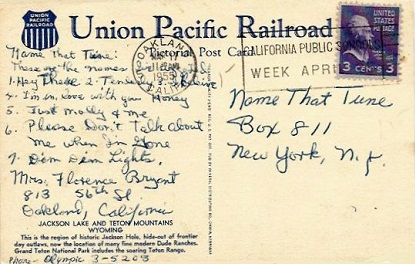 UNION
PACIFIC
RAILROAD
Union Pacific Railroad
Pictorial Post Card
OAKLAND
1955
CALIF.
CALIFORNIA PUBLIC SCHOOLS
WEEK APRIL
3 CENTS 3
Name That Tune:
These are the names
1. Hey There 2. Tenderly
4. I'm in Love with you Honey
5. Just Molly & me
6. Please Don't Talk about
me when I'm Gone
7. Dim Dim Lights.
Mrs. Florence Bryant
813 56th St
Oakland, California
Name That Tune
Box 811
New York, N.Y.
JACKSON LAKE AND TETON MOUNTAINS
WYOMING
This is the region of historic Jackson Hole, hide-out of frontier
day outlaws, now the location of many fine modern Dude Ranches.
Grand Teton National Park includes the soaring Teton Range.
Phone - Olympic 3-5203